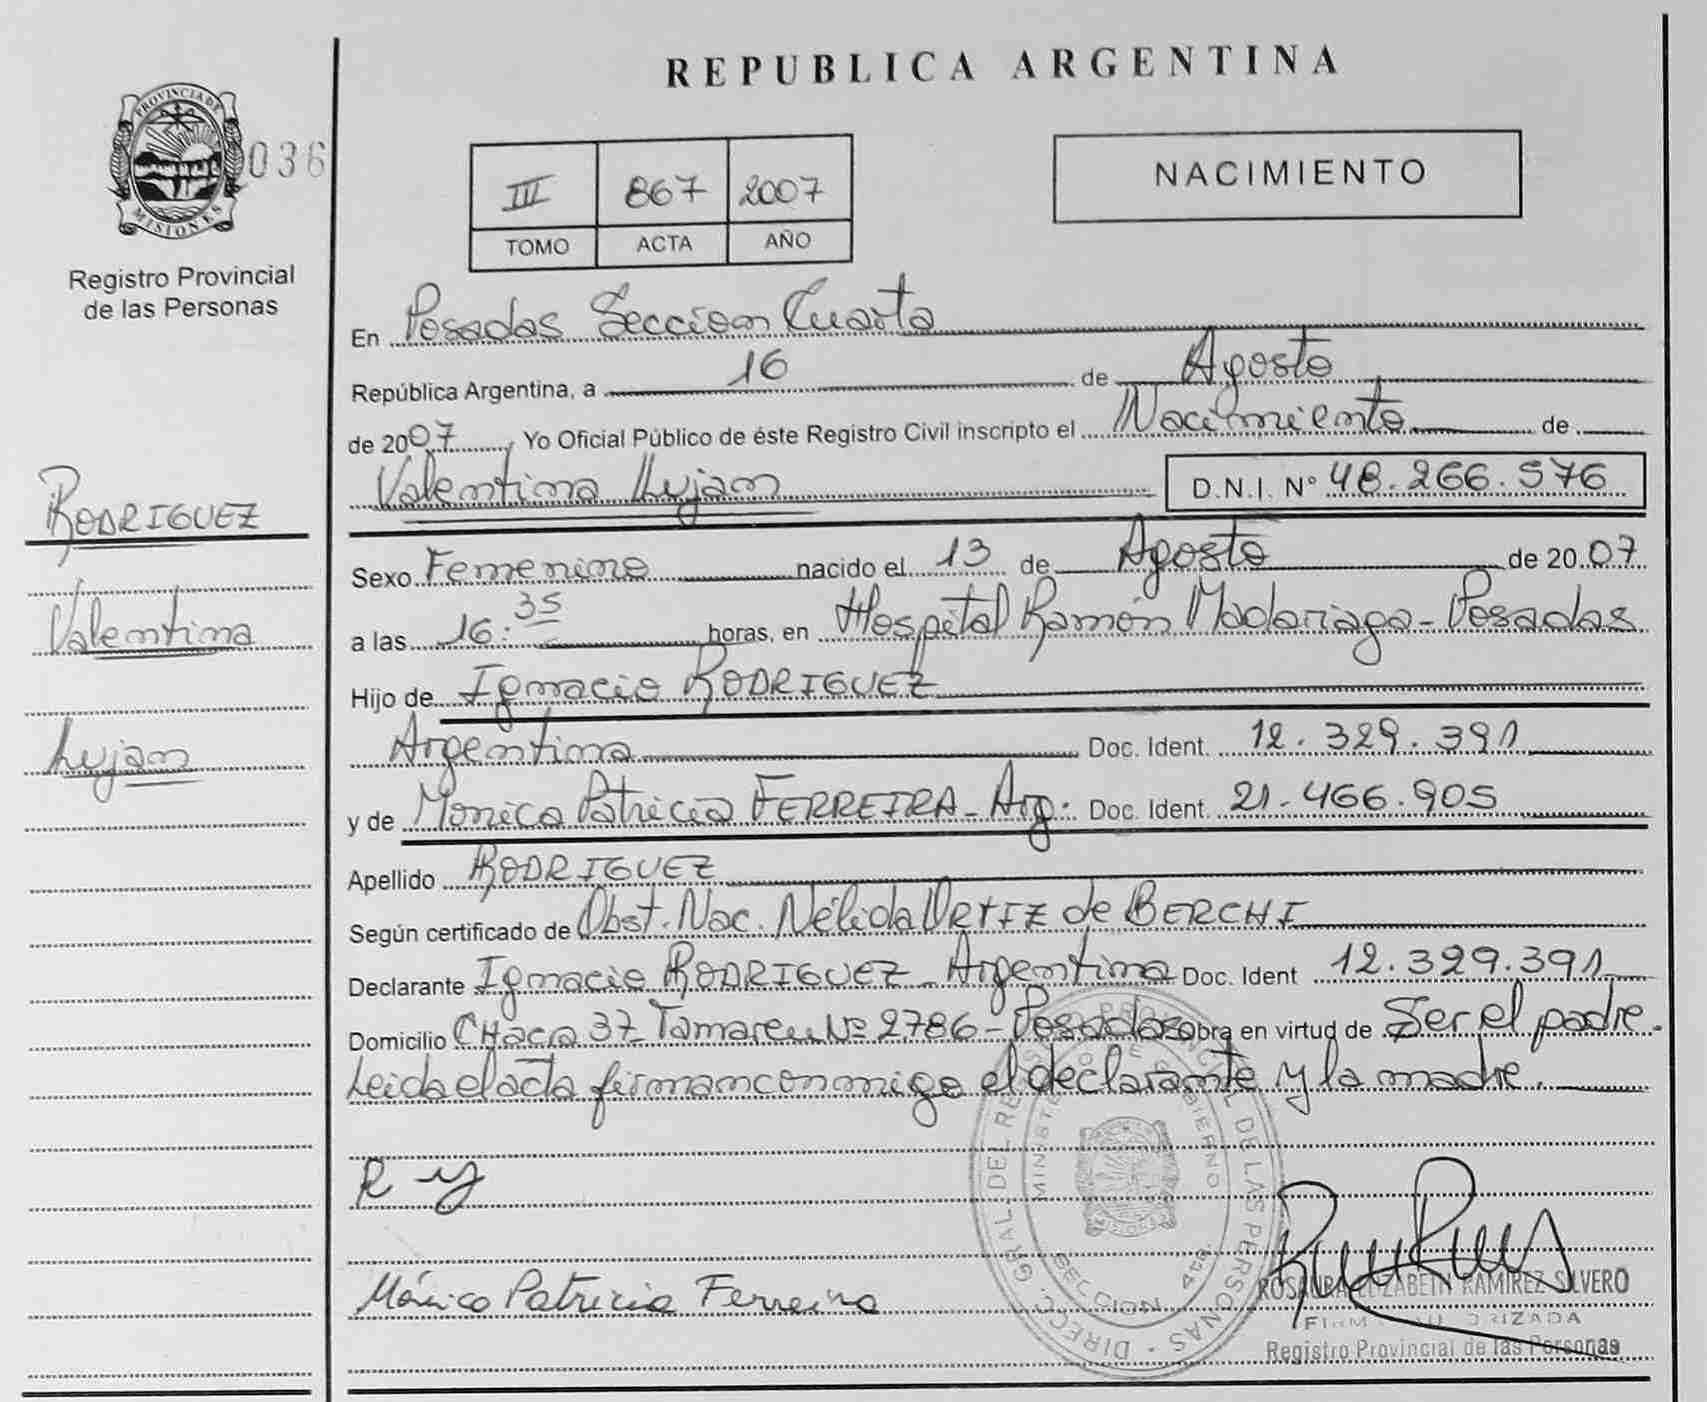 REPUBLICA ARGENTINA
PROVINCIA DE
MISIONES
036
Registro Provincial
de las Personas
III 867 2007
TOMO ACTA AÑO
NACIMIENTO
En Posadas Seccion Cuarta
República Argentina, a 16 de Agosto
de 2007, Yo Oficial Público de éste Registro Civil inscripto el Nacimiento de
Valentina Lujan D.N.I. Nº 48.266.576
RODRIGUEZ
Valentina
Lujan
Sexo Femenino nacido el 13 de Agosto de 2007
a las 16:35 horas, en Hospital Ramón Madariaga - Posadas
Hijo de Ignacio RODRIGUEZ
Argentina Doc. Ident. 12.329.391
y de Monica Patricia FERREIRA - Arg: Doc. Ident. 21.466.905
Apellido RODRIGUEZ
Según certificado de Obst. Nac. Nélida ORTIZ de BERCHI
Declarante Ignacio RODRIGUEZ - Argentina Doc. Ident 12.329.391
Domicilio CHaca 37 Nº 2786 - Posadas obra en virtud de Ser el padre.
Leida el acta firman conmigo el declarante y la madre.
Mónica Patricia Ferreira
DIRECC. GRAL. DEL REG. DE LAS PERSONAS
MINISTERIO DE GOBIERNO
SECCION 4ta.
ROSAURA ELIZABETH RAMIREZ SILVERO
FIRMA AUTORIZADA
Registro Provincial de las Personas